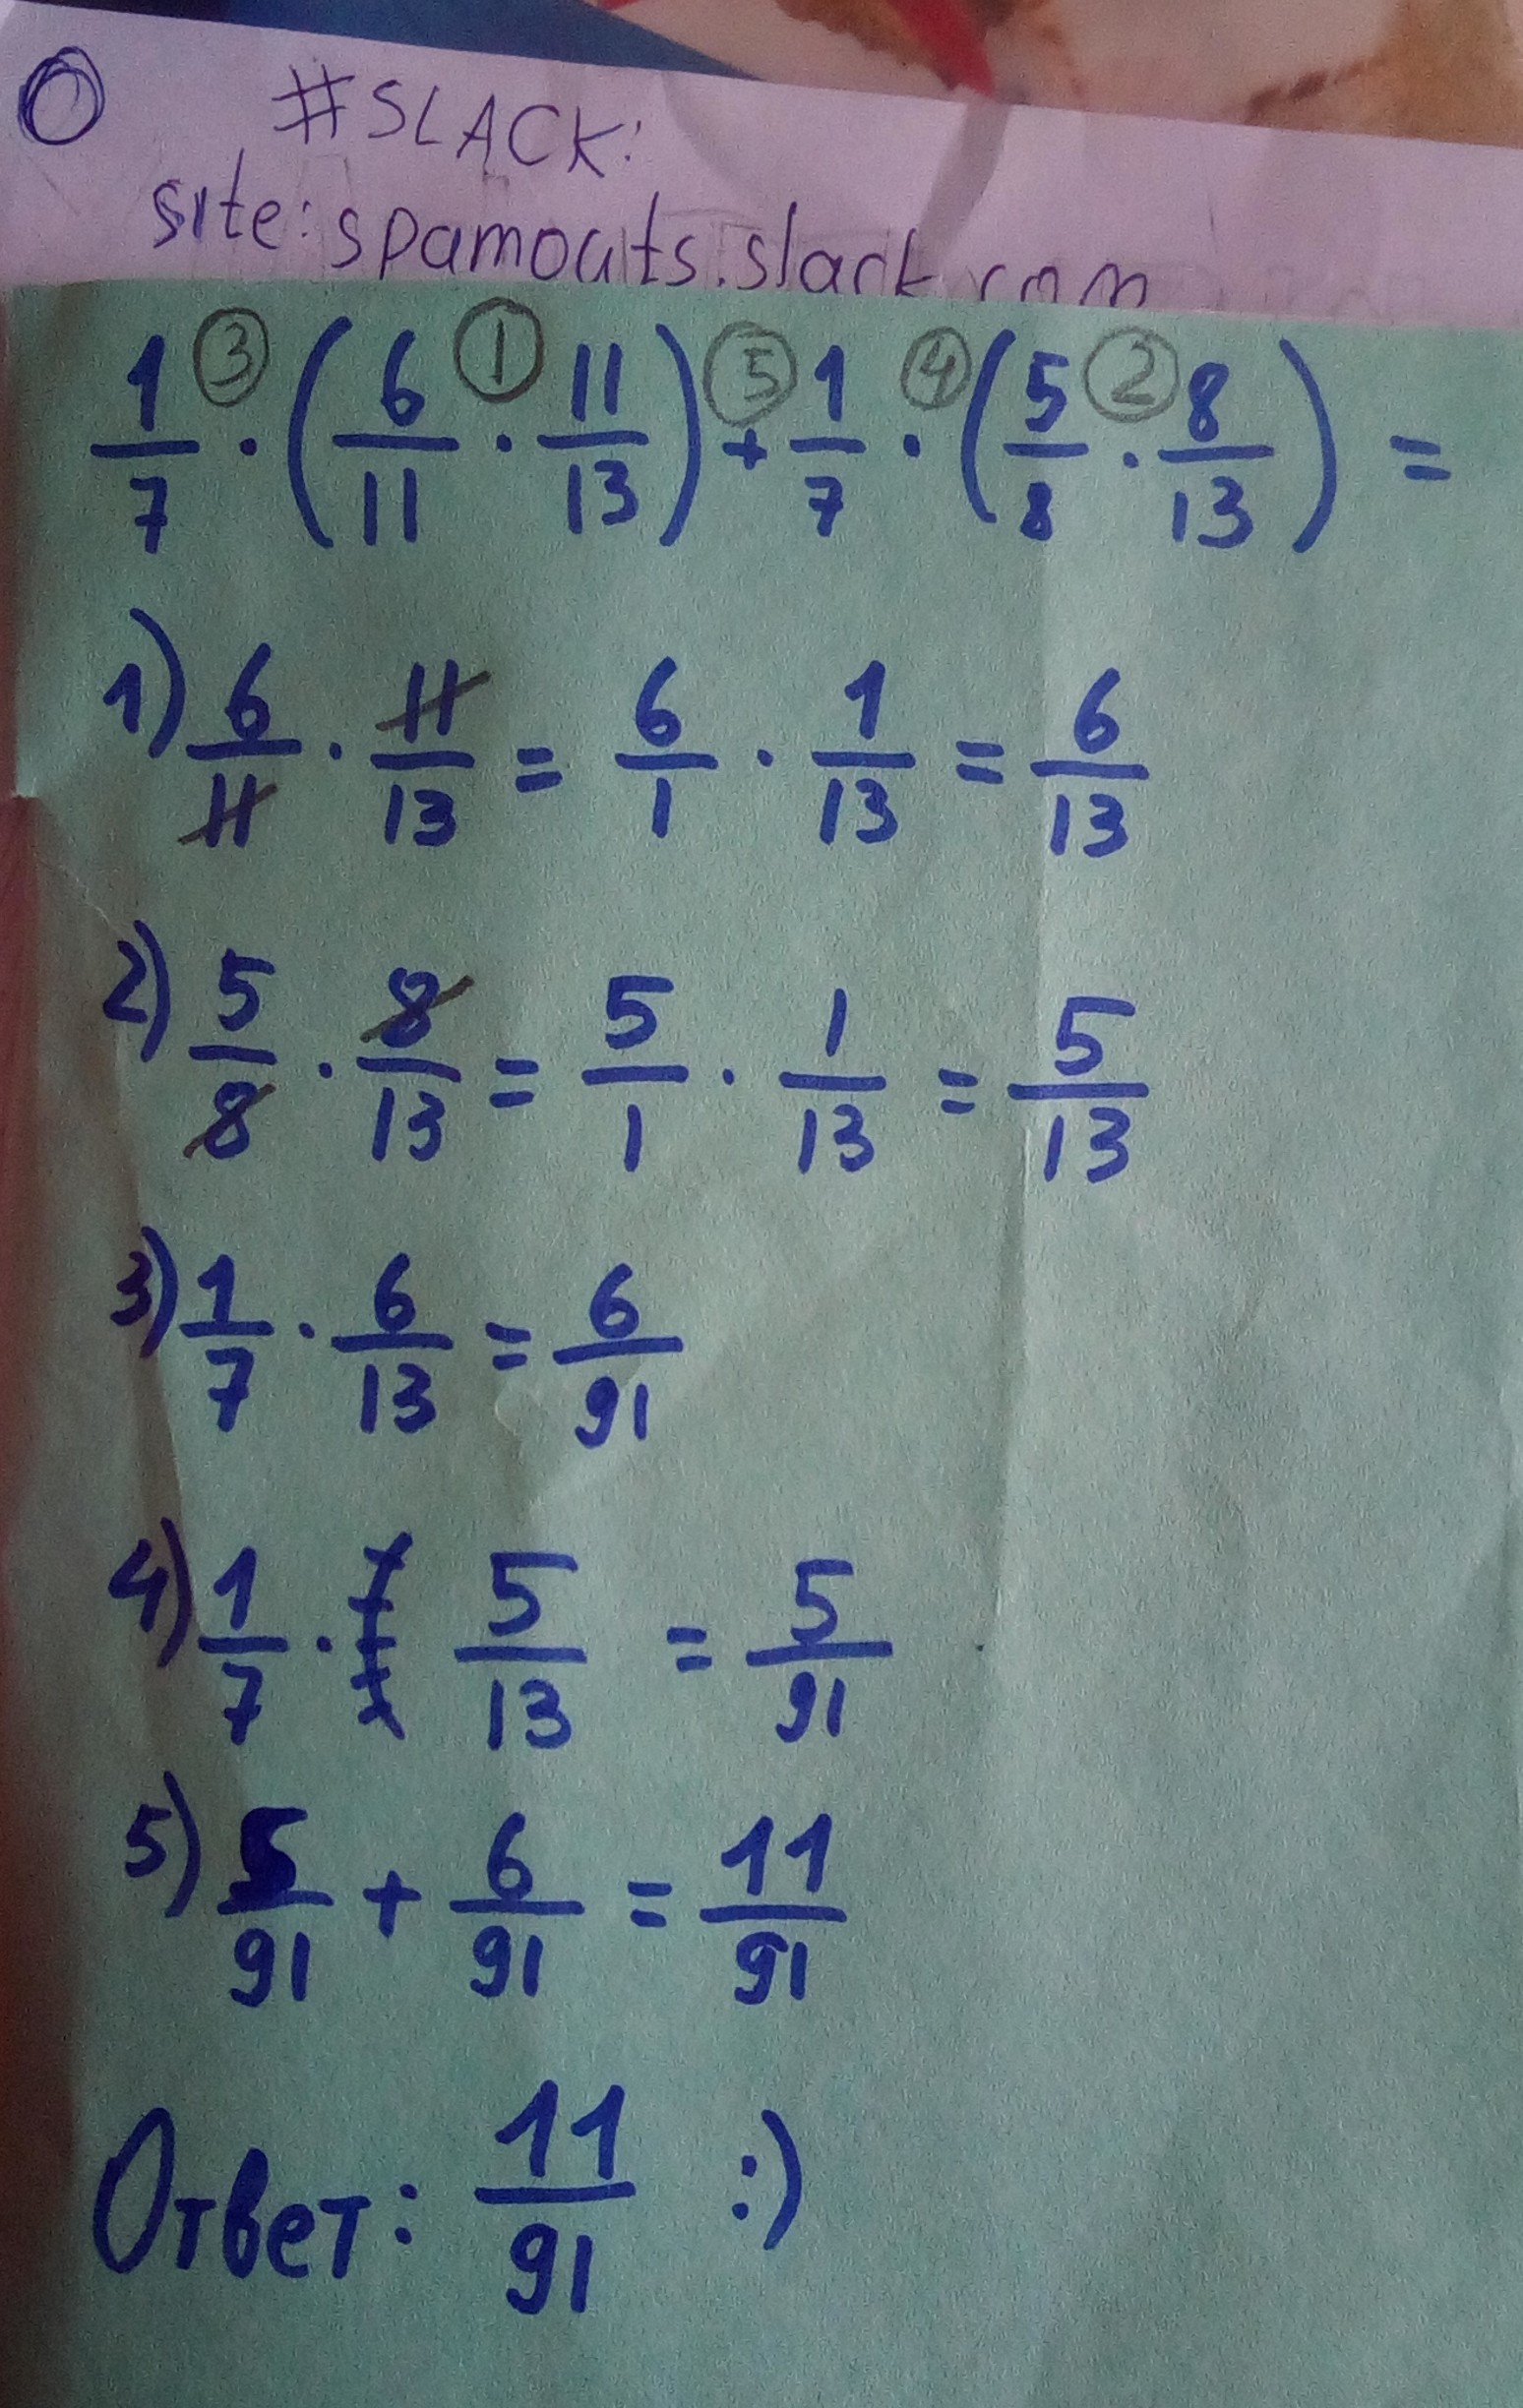 #SLACK:
site: spamouts.slack.com
③ ① ⑤ ④ ②
1/7 · (6/11 · 11/13) + 1/7 · (5/8 · 8/13) =
1) 6/11 · 11/13 = 6/1 · 1/13 = 6/13
2) 5/8 · 8/13 = 5/1 · 1/13 = 5/13
3) 1/7 · 6/13 = 6/91
4) 1/7 · 5/13 = 5/91
5) 5/91 + 6/91 = 11/91
Ответ: 11/91 :)